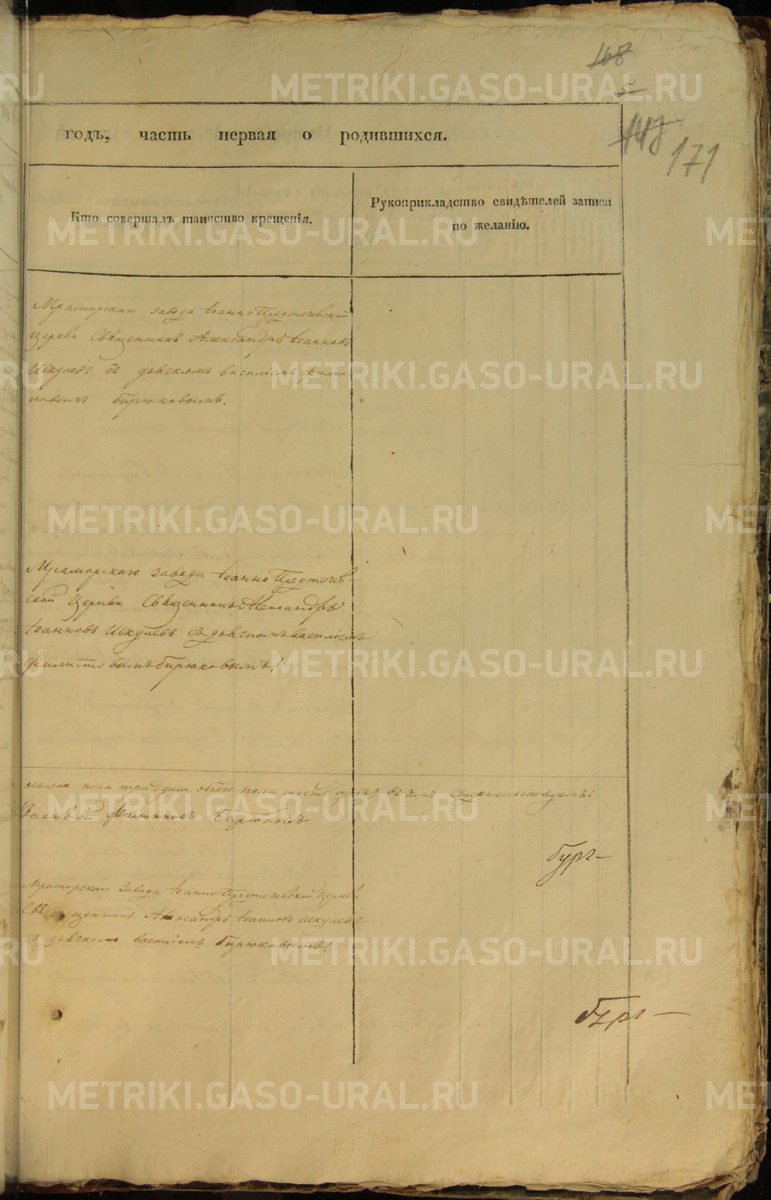 168
5
148
171
годъ, часть первая о родившихся.
Кто совершалъ таинство крещенія.
Рукоприкладство свидѣтелей записи
по желанію.
Мраморскаго завода Іоанно Предтечевской
церкви Священникъ Александръ Іоанновъ
Шкулевъ съ дьячкомъ Василіемъ Филип
повымъ Бирюковымъ.
Мраморскаго завода Іоанно Предтечев-
ской Церкви Священникъ Александръ
Іоанновъ Шкулевъ съ дьячкомъ Василіемъ
Филипповымъ Бирюковымъ.
женска пола три души, обоего пола шесть душъ, въ томъ свидѣтельствуемъ:
Василій Филипповъ Бирюковъ
Мраморскаго Завода Іоанно Предтечевской Церкви
Священникъ Александръ Іоанновъ Шкулевъ
съ дьячкомъ Василіемъ Бирюковымъ.
METRIKI.GASO-URAL.RU